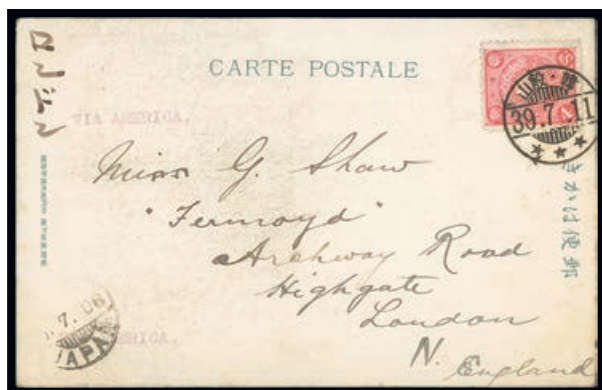 CARTE POSTALE
ロンドン
VIA AMERICA.
39.7.11
きかは便郵
Miss G. Shaw
"Fermoyd"
Archway Road
Highgate
London
N. England
7.06
JAPAN
AMERICA.